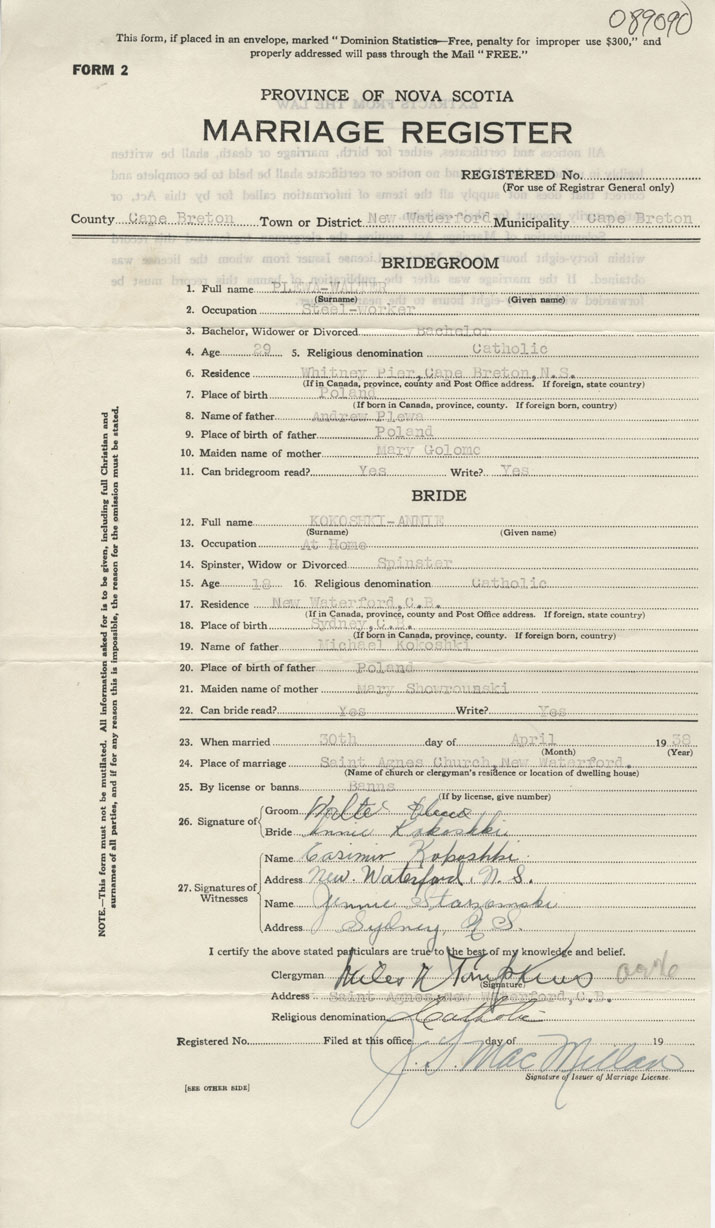 089090
This form, if placed in an envelope, marked "Dominion Statistics—Free, penalty for improper use $300," and
properly addressed will pass through the Mail "FREE."
FORM 2
PROVINCE OF NOVA SCOTIA
MARRIAGE REGISTER
REGISTERED No.
(For use of Registrar General only)
County Cape Breton Town or District New Waterford Municipality Cape Breton
BRIDEGROOM
1. Full name PLEWA-WALTER
(Surname) (Given name)
2. Occupation Steel-worker
3. Bachelor, Widower or Divorced Bachelor
4. Age 29 5. Religious denomination Catholic
6. Residence Whitney Pier, Cape Breton, N.S.
(If in Canada, province, county and Post Office address. If foreign, state country)
7. Place of birth Poland
(If born in Canada, province, county. If foreign born, country)
8. Name of father Andrew Plewa
9. Place of birth of father Poland
10. Maiden name of mother Mary Golomc
11. Can bridegroom read? Yes Write? Yes
BRIDE
12. Full name KOKOSHKI-ANNIE
(Surname) (Given name)
13. Occupation At Home
14. Spinster, Widow or Divorced Spinster
15. Age 18 16. Religious denomination Catholic
17. Residence New Waterford, C.B.
(If in Canada, province, county and Post Office address. If foreign, state country)
18. Place of birth Sydney, C.B.
(If born in Canada, province, county. If foreign born, country)
19. Name of father Michael Kokoshki
20. Place of birth of father Poland
21. Maiden name of mother Mary Showrounski
22. Can bride read? Yes Write? Yes
23. When married 30th day of April 1938
(Month) (Year)
24. Place of marriage Saint Agnes Church, New Waterford.
(Name of church or clergyman's residence or location of dwelling house)
25. By license or banns Banns
(If by license, give number)
26. Signature of Groom Walter Plewa
Bride Annie Kokoshki
27. Signatures of Witnesses Name Casimir Kokoshki
Address New Waterford, N. S.
Name Jennie Starzomski
Address Sydney, N.S.
I certify the above stated particulars are true to the best of my knowledge and belief.
Clergyman Miles N Tompkins
(Signature)
Address Saint Agnes, New Waterford, C.B.
Religious denomination Catholic
Registered No. Filed at this office day of 19
J. S. MacMillan
Signature of Issuer of Marriage License.
[SEE OTHER SIDE]
NOTE.—This form must not be mutilated. All information asked for is to be given, including full Christian and
surnames of all parties, and if for any reason this is impossible, the reason for the omission must be stated.